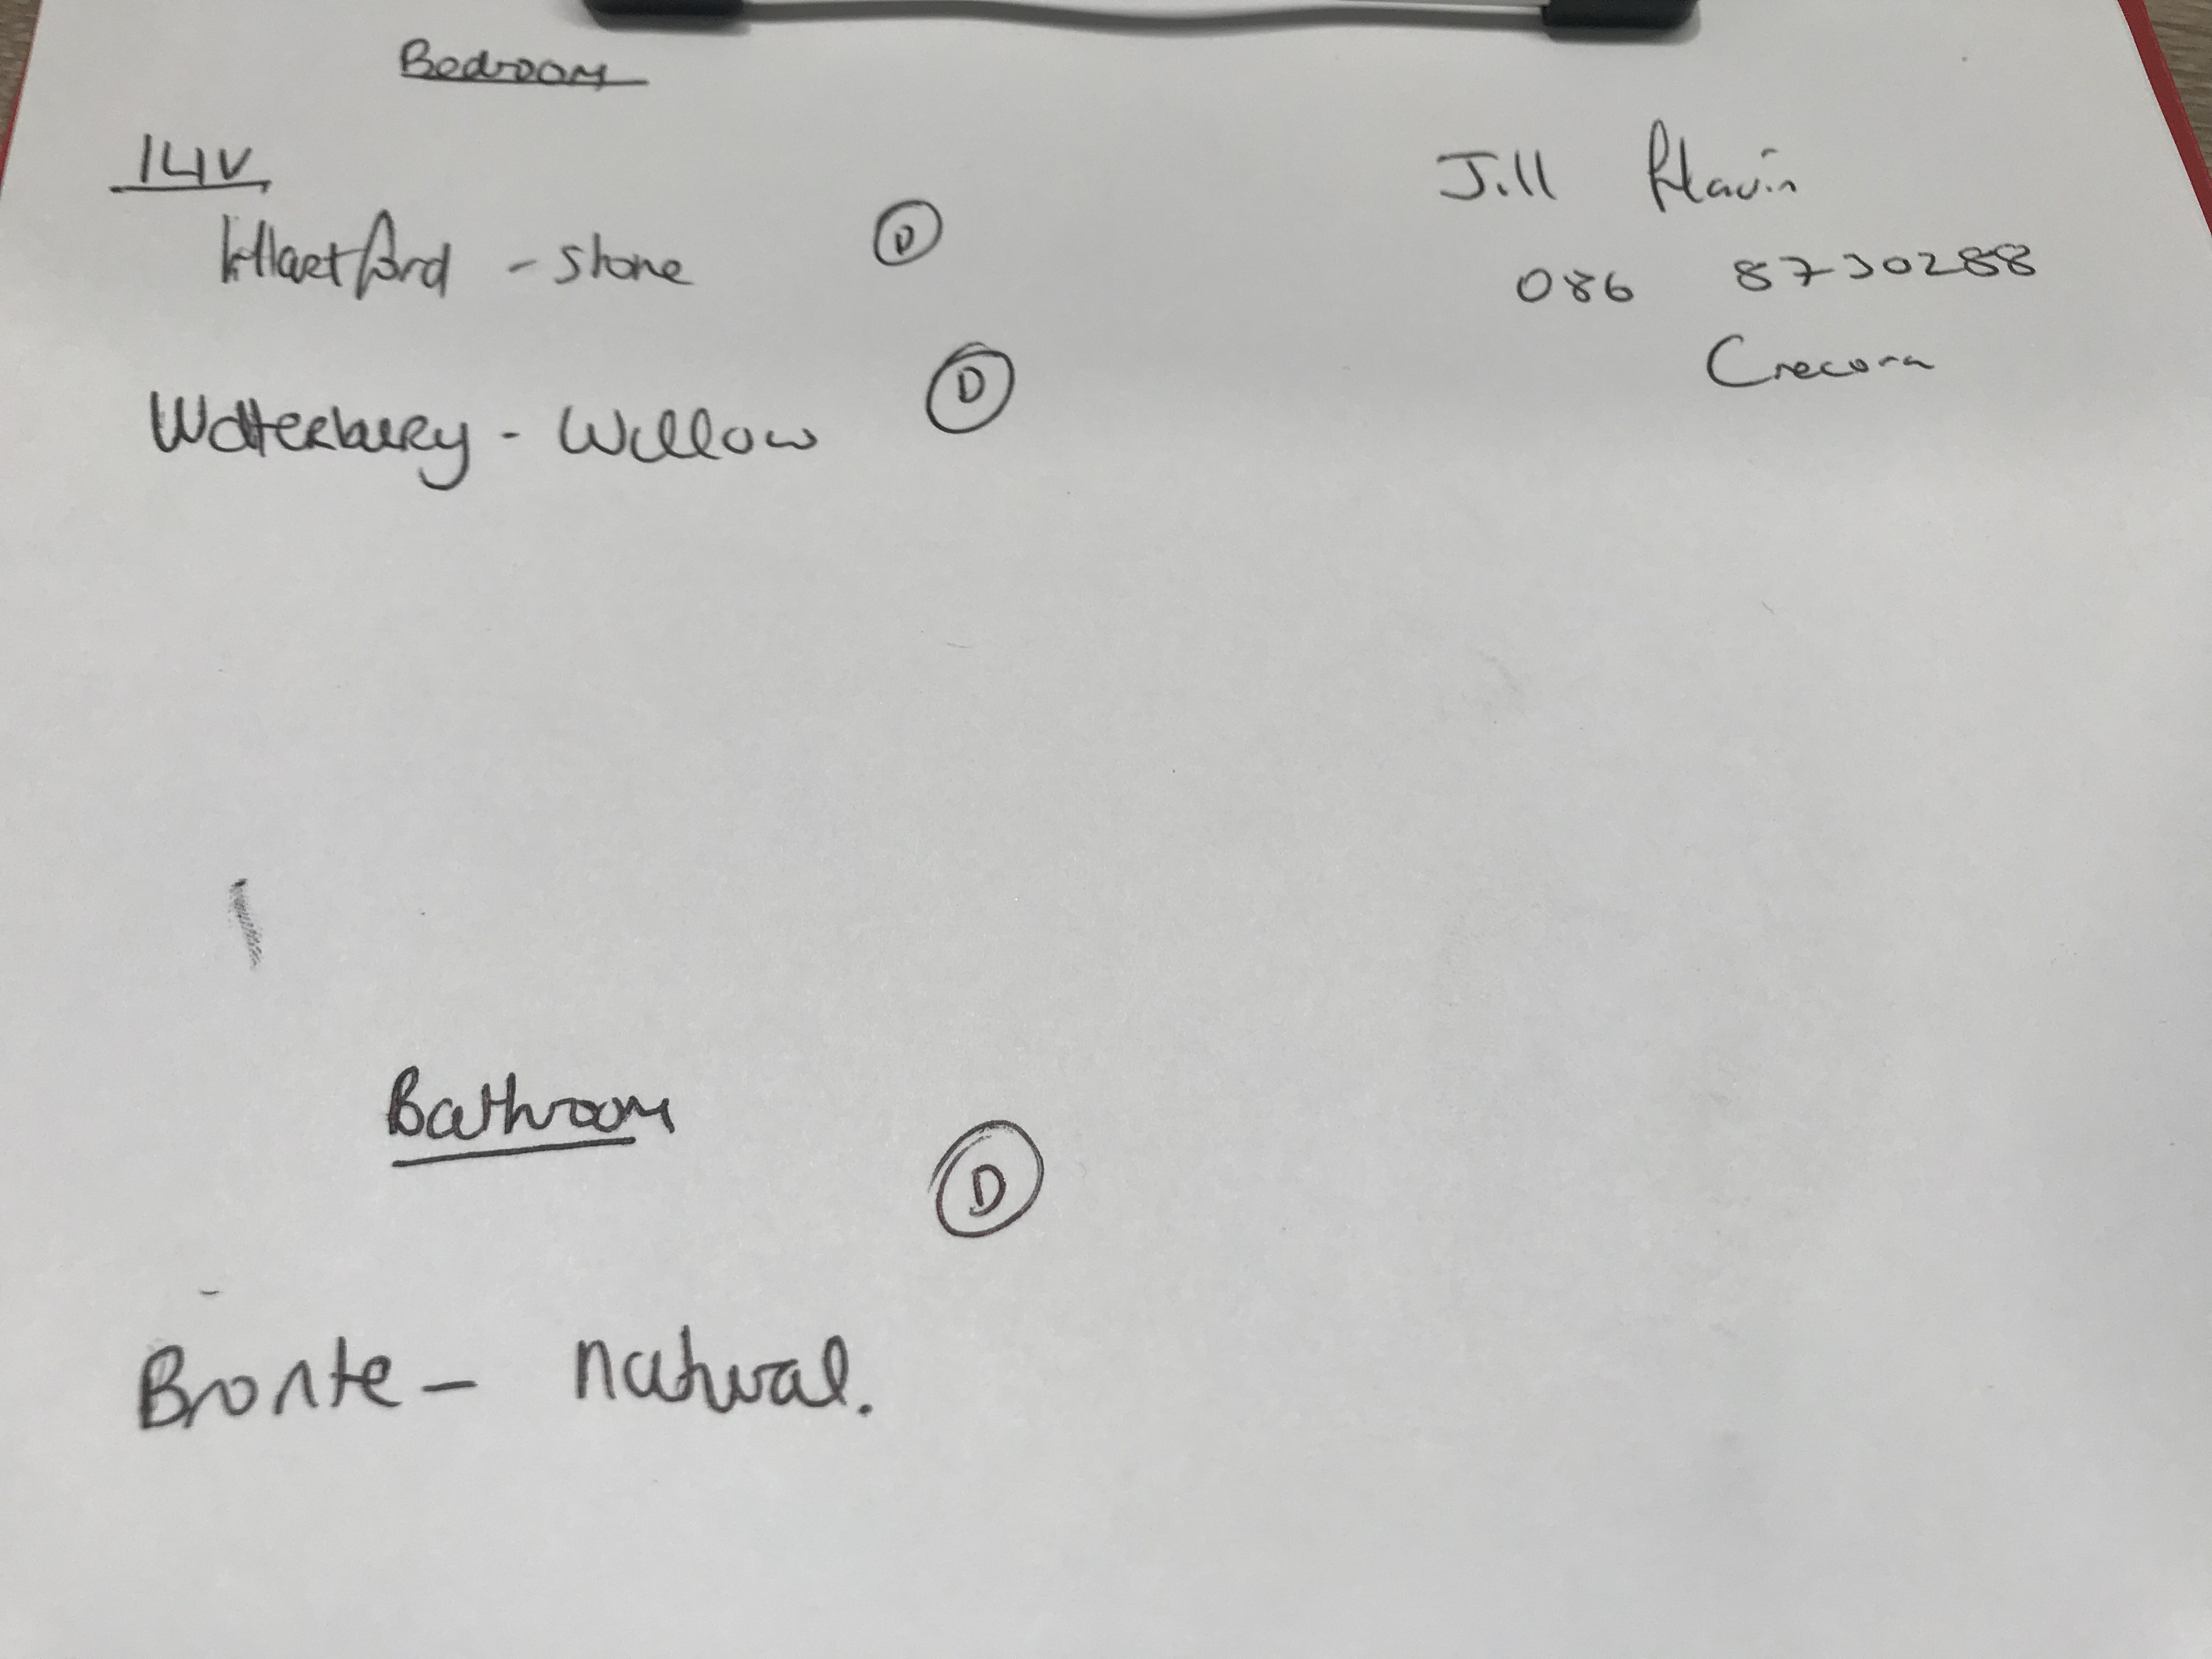 Bedroom
14V
Hartford - stone D
Watterbury - Willow D
Jill Flavin
086 8730288
Crecora
Bathroom
D
Bronte - natural.